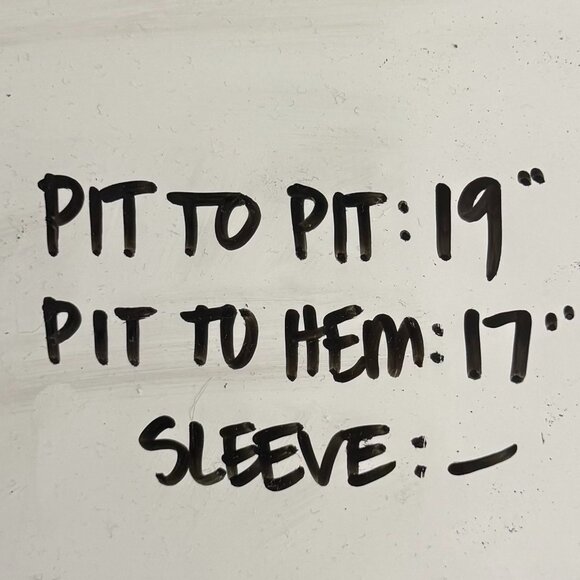 PIT TO PIT: 19"
PIT TO HEM: 17"
SLEEVE: —